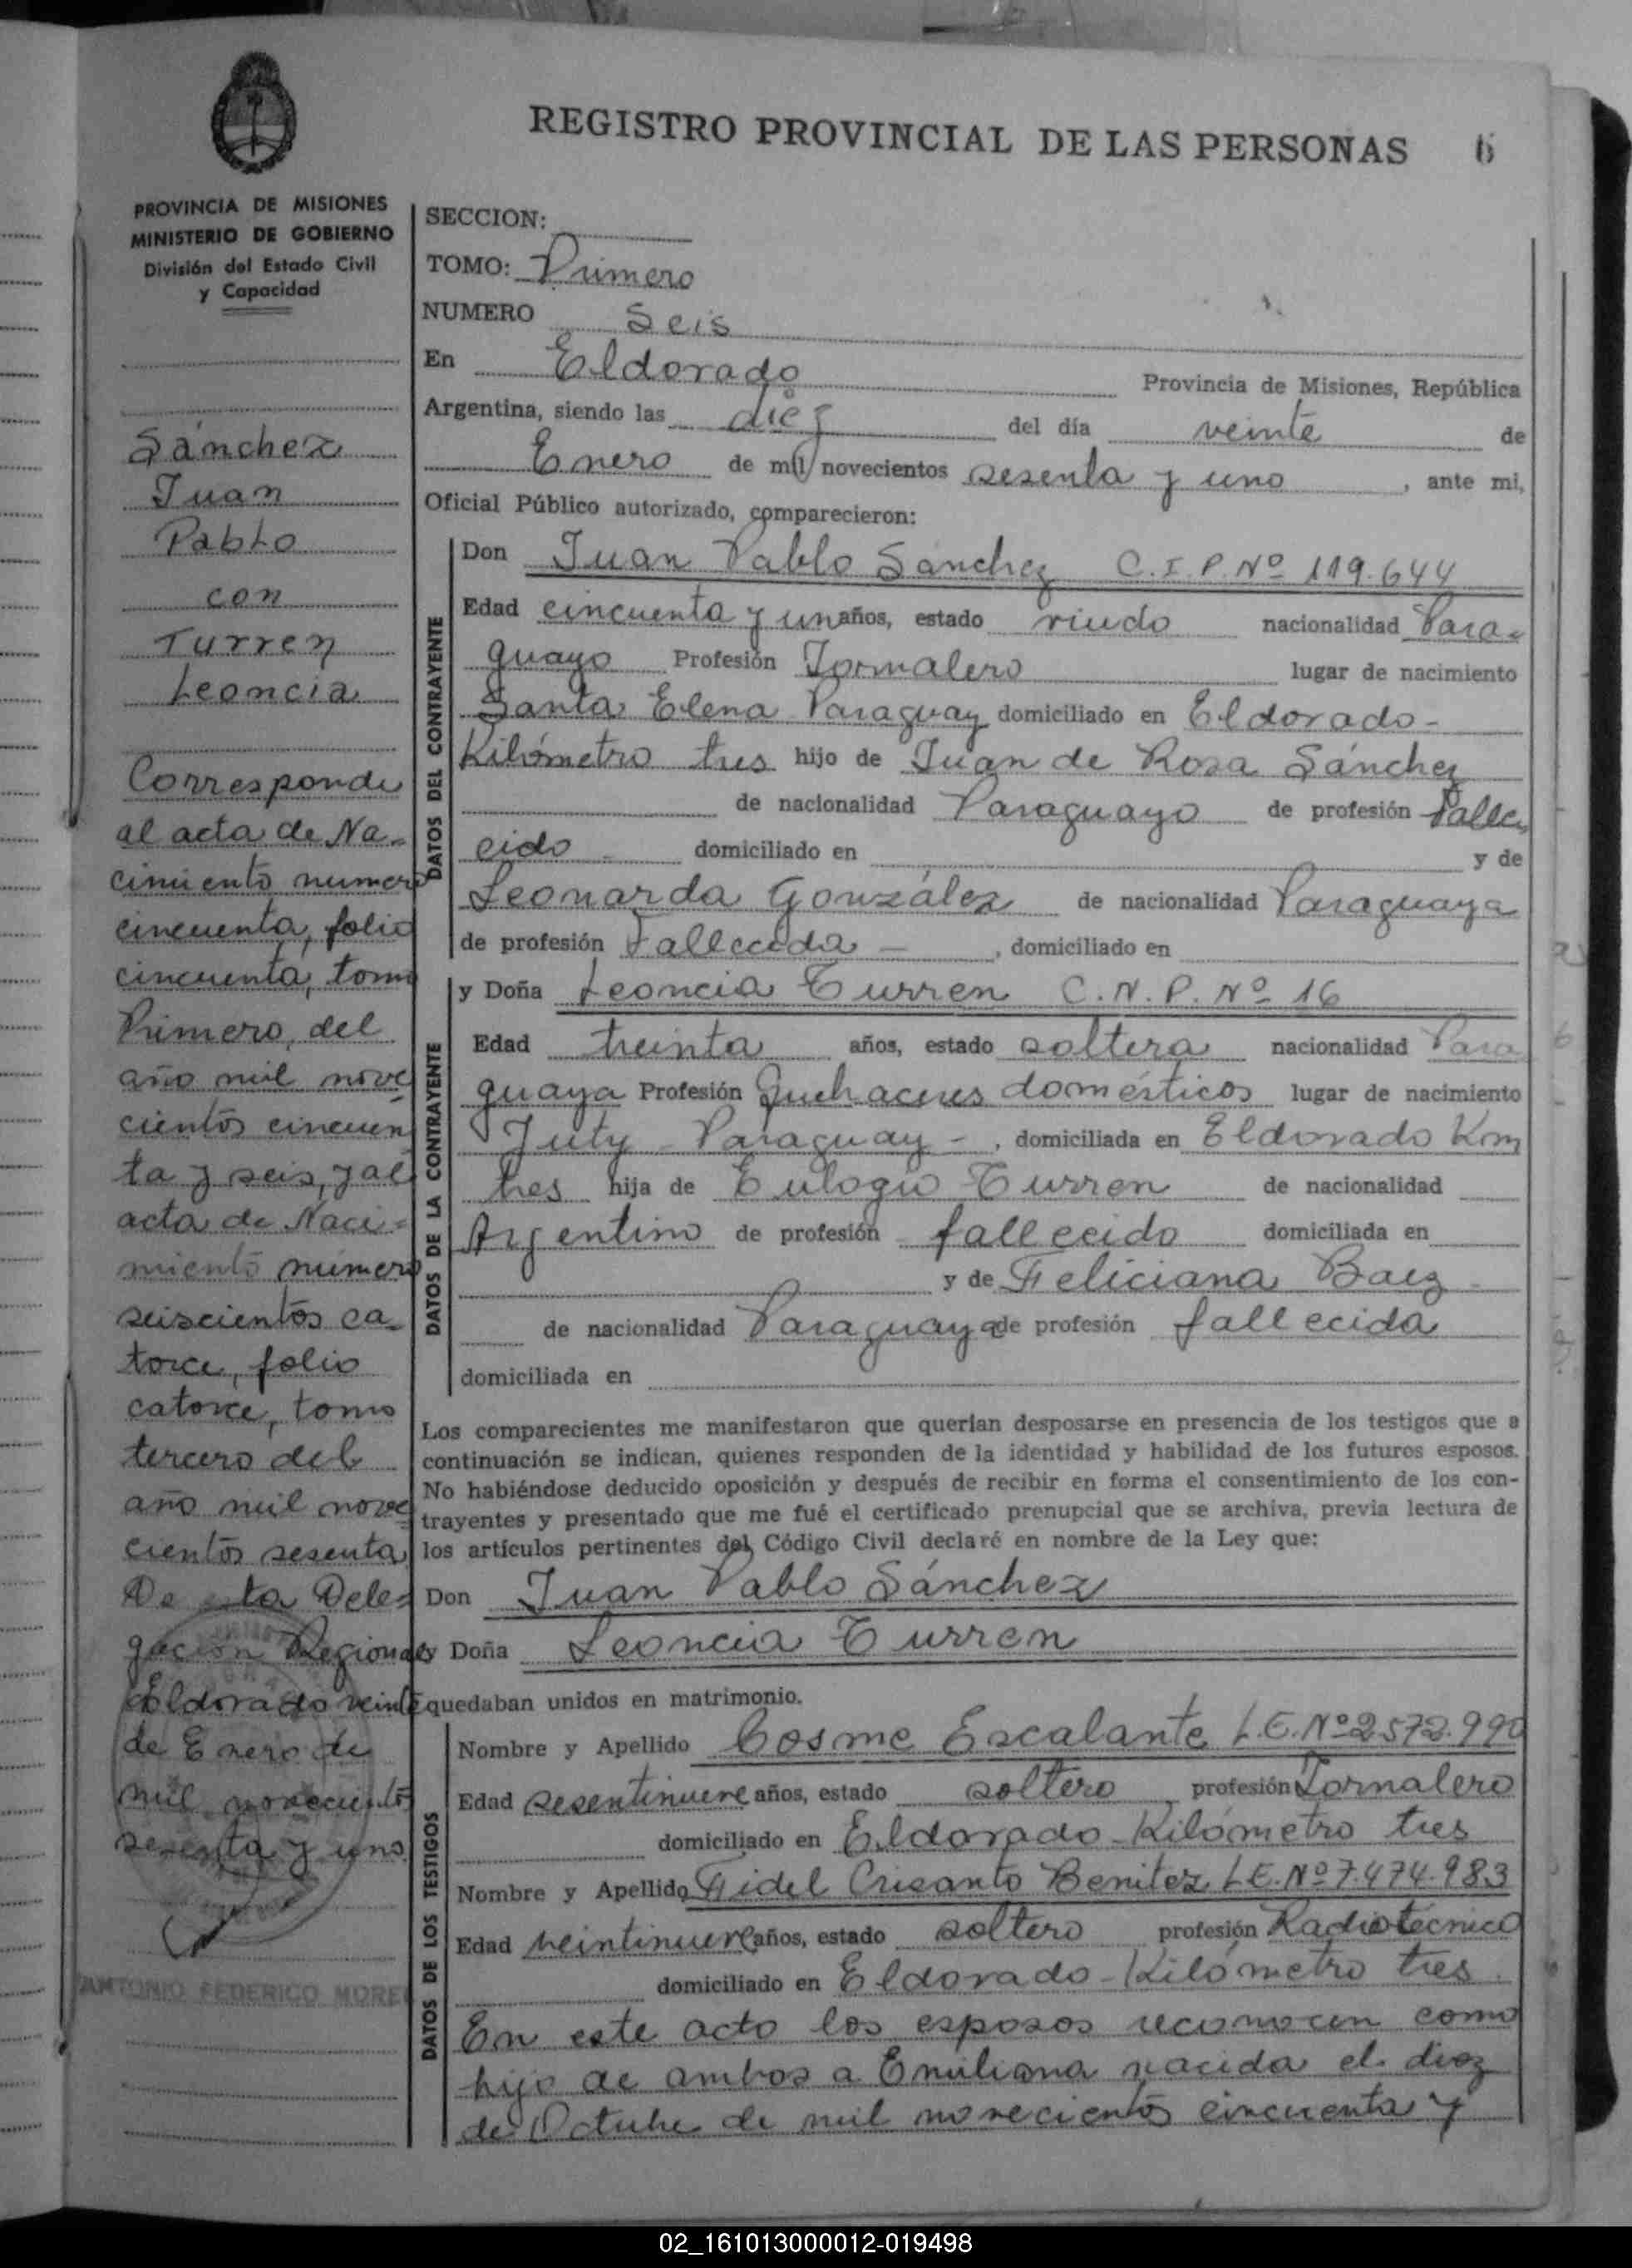 REGISTRO PROVINCIAL DE LAS PERSONAS 6
PROVINCIA DE MISIONES
MINISTERIO DE GOBIERNO
División del Estado Civil
y Capacidad
Sánchez
Juan
Pablo
con
Turren
Leoncia
Corresponde
al acta de Na-
cimiento numero
cincuenta, folio
cincuenta, tomo
Primero, del
año mil nove
cientos cincuen
ta y seis, y al
acta de Naci-
miento número
seiscientos ca-
torce, folio
catorce, tomo
tercero del
año mil nove
cientos sesenta
De esta Dele-
gación Regional
Eldorado veinte
de Enero de
mil novecientos
sesenta y uno.
ANTONIO FEDERICO MORE
SECCION:
TOMO: Primero
NUMERO Seis
En Eldorado Provincia de Misiones, República
Argentina, siendo las diez del día veinte de
Enero de mil novecientos sesenta y uno, ante mi,
Oficial Público autorizado, comparecieron:
DATOS DEL CONTRAYENTE
Don Juan Pablo Sánchez C.I.P. Nº 119.644
Edad cincuenta y un años, estado viudo nacionalidad Para-
guayo Profesión Jornalero lugar de nacimiento
Santa Elena Paraguay domiciliado en Eldorado-
Kilómetro tres hijo de Juan de Rosa Sánchez
de nacionalidad Paraguayo de profesión Falle-
cido - domiciliado en y de
Leonarda González de nacionalidad Paraguaya
de profesión Fallecida -, domiciliado en
DATOS DE LA CONTRAYENTE
y Doña Leoncia Turren C.N.P. Nº 16
Edad treinta años, estado soltera nacionalidad Para
guaya Profesión Quehaceres domésticos lugar de nacimiento
Yuty - Paraguay -, domiciliada en Eldorado Km
tres hija de Eulogio Turren de nacionalidad
Argentino de profesión fallecido domiciliada en
y de Feliciana Baez -
de nacionalidad Paraguaya de profesión fallecida
domiciliada en
Los comparecientes me manifestaron que querían desposarse en presencia de los testigos que a
continuación se indican, quienes responden de la identidad y habilidad de los futuros esposos.
No habiéndose deducido oposición y después de recibir en forma el consentimiento de los con-
trayentes y presentado que me fué el certificado prenupcial que se archiva, previa lectura de
los artículos pertinentes del Código Civil declaré en nombre de la Ley que:
Don Juan Pablo Sánchez
y Doña Leoncia Turren
quedaban unidos en matrimonio.
DATOS DE LOS TESTIGOS
Nombre y Apellido Cosme Escalante L.E. Nº 2572.990
Edad sesentinueve años, estado soltero profesión Jornalero
domiciliado en Eldorado-Kilómetro tres
Nombre y Apellido Fidel Crisanto Benitez L.E. Nº 7.474.983
Edad veintinueve años, estado soltero profesión Radiotécnico
domiciliado en Eldorado-Kilómetro tres
En este acto los esposos reconocen como
hijo de ambos a Emiliana nacida el diez
de Octubre de mil novecientos cincuenta y
02_161013000012-019498